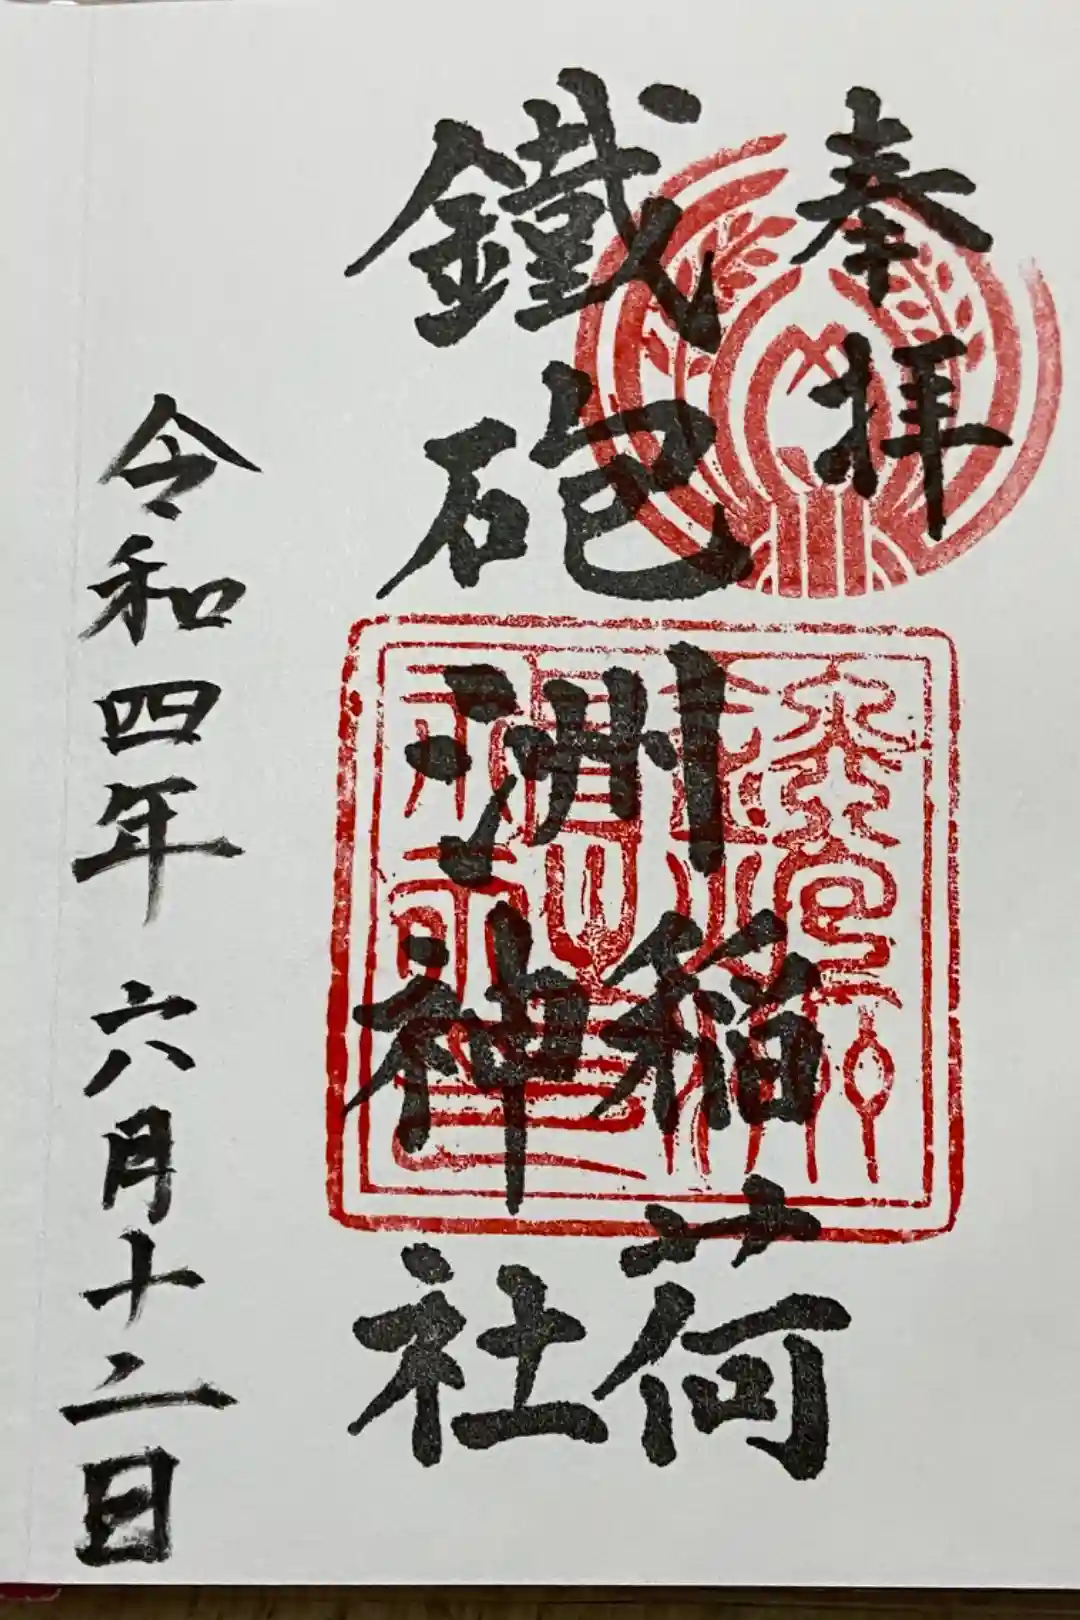 奉拝
鐵砲洲
稲荷
神社
令和四年六月十二日